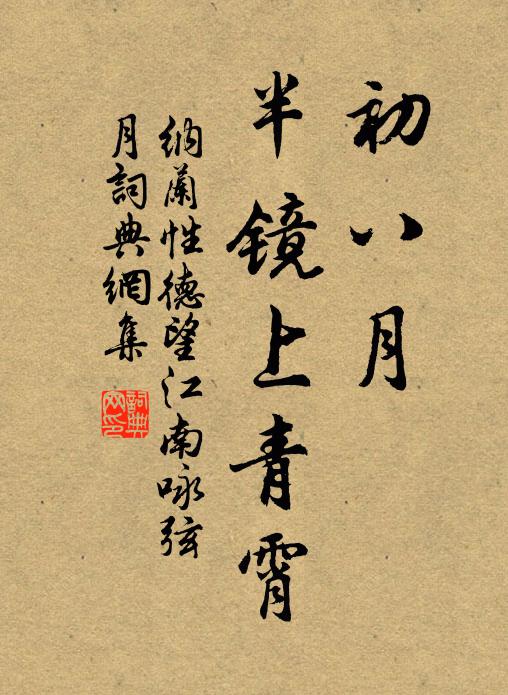 初八月
半镜上青霄
纳蘭性德望江南咏弦
月詞典網集
詞典
网印